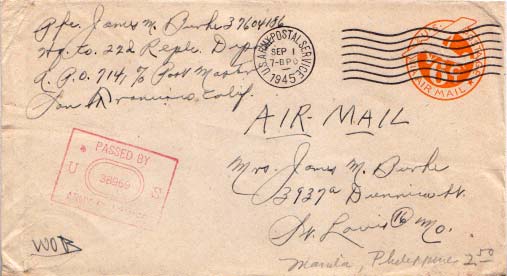 Pfc. James M. Burke 37604186
Hq. Co. 22d Repl. Depot
A.P.O. 714, % Post Master
San Francisco, Calif.
U.S. ARMY POSTAL SERVICE
SEP 1
7-8 PM
1945
AIR MAIL
AIR-MAIL
PASSED BY
U S
38969
ARMY EXAMINER
Mrs. James M. Burke
3937a St.
St. Louis 16 Mo.
Manila, Philippines 2.50